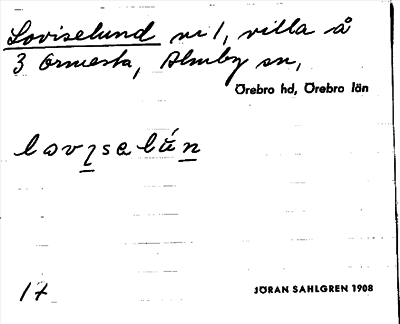 Loviselund nr 1, villa å
3 Ormesta, Almby sn,
Örebro hd, Örebro län
lovɩsəlún
17
JÖRAN SAHLGREN 1908